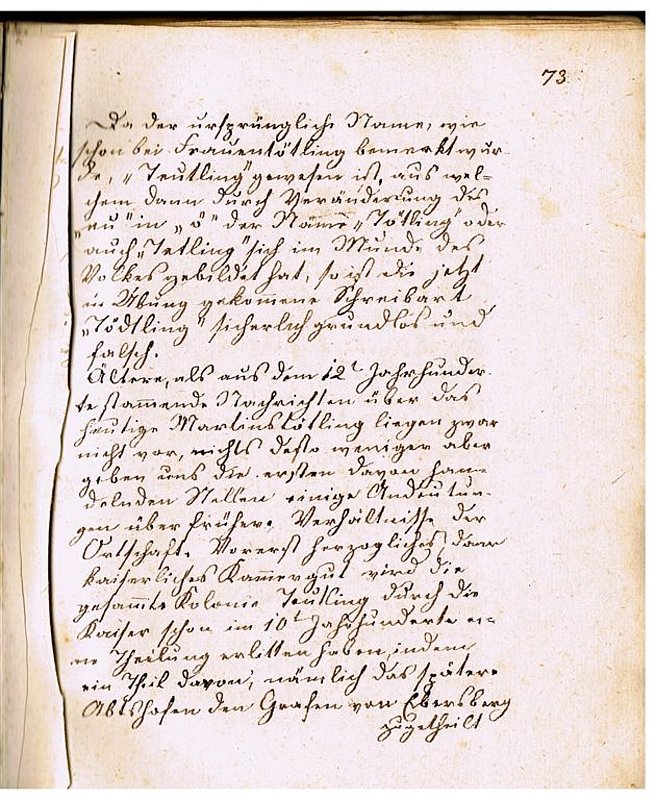 73
Da der ursprüngliche Name, wie
schon bei Frauentötling bemerkt wur-
de, „Teutling" gewesen ist, aus wel-
chem dann durch Veränderung des
„eu" in „ö" der Name „Tötling" oder
auch „Tetling" sich im Munde des
Volkes gebildet hat, so ist die jetzt
in Übung gekomene Schreibart
„Tödtling" sicherlich grundlos und
falsch.
Ältere, als aus dem 12t Jahrhunder-
te stammende Nachrichten über das
heutige Martinstötling liegen zwar
nicht vor, nichts desto weniger aber
geben uns die ersten davon han-
delnden Stellen einige Andeutun-
gen über frühere Verhältnisse der
Ortschaft. Vorerst herzogliches, dann
kaiserliches Kammergut wird die
gesammte Kolonie Teutling durch die
Kaiser schon im 10t Jahrhunderte ei-
ne Theilung erlitten haben, indem
ein Theil davon, nämlich das spätere
Abtshofen den Grafen von Ebersberg
zugetheilt